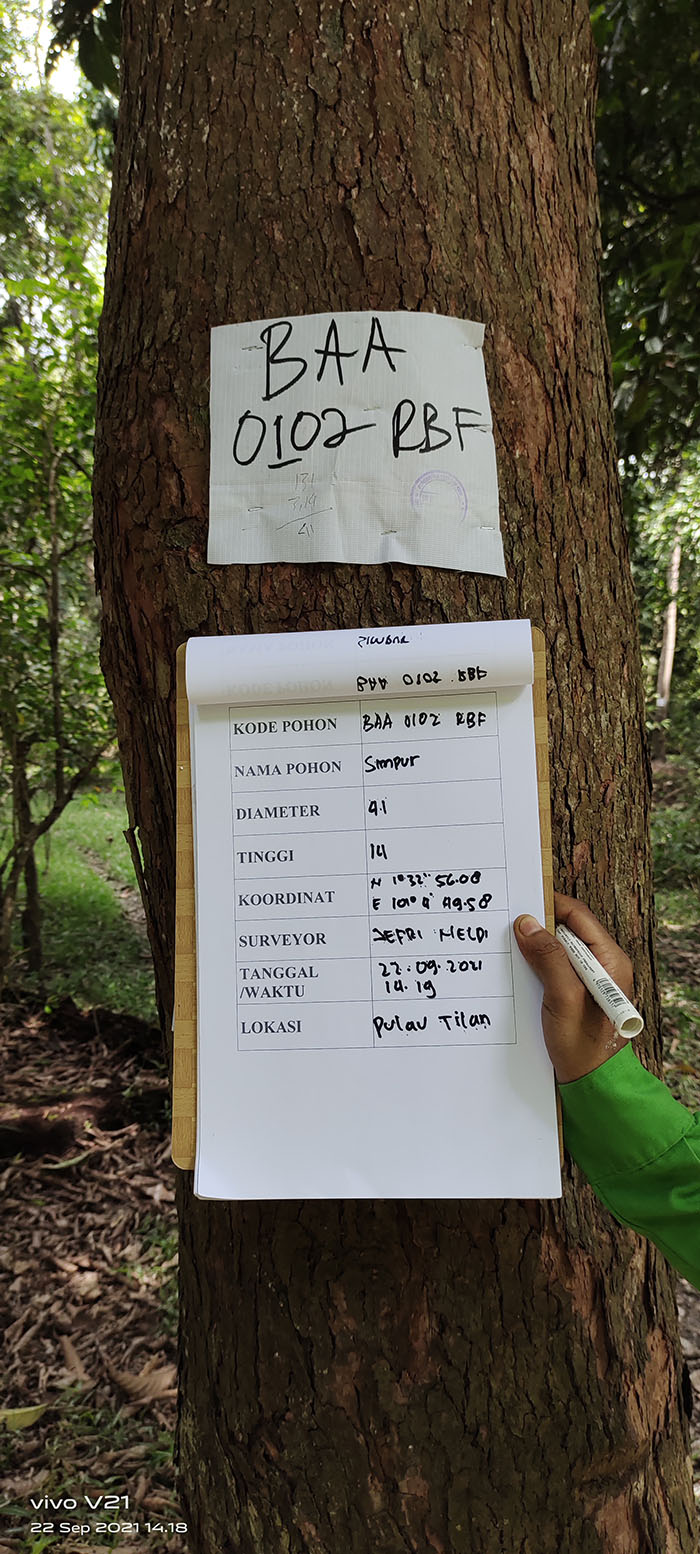 BAA
0102 RBF
131
3,14
41
BAA 0102 RBF
KODE POHON BAA 0102 RBF
NAMA POHON Simpur
DIAMETER 41
TINGGI 14
KOORDINAT N 1° 32" 56.08
E 101° 4' 49.58
SURVEYOR JEFRI MELDI
TANGGAL /WAKTU 22.09.2021 14.19
LOKASI Pulau Tilan
vivo V21
22 Sep 2021 14.18